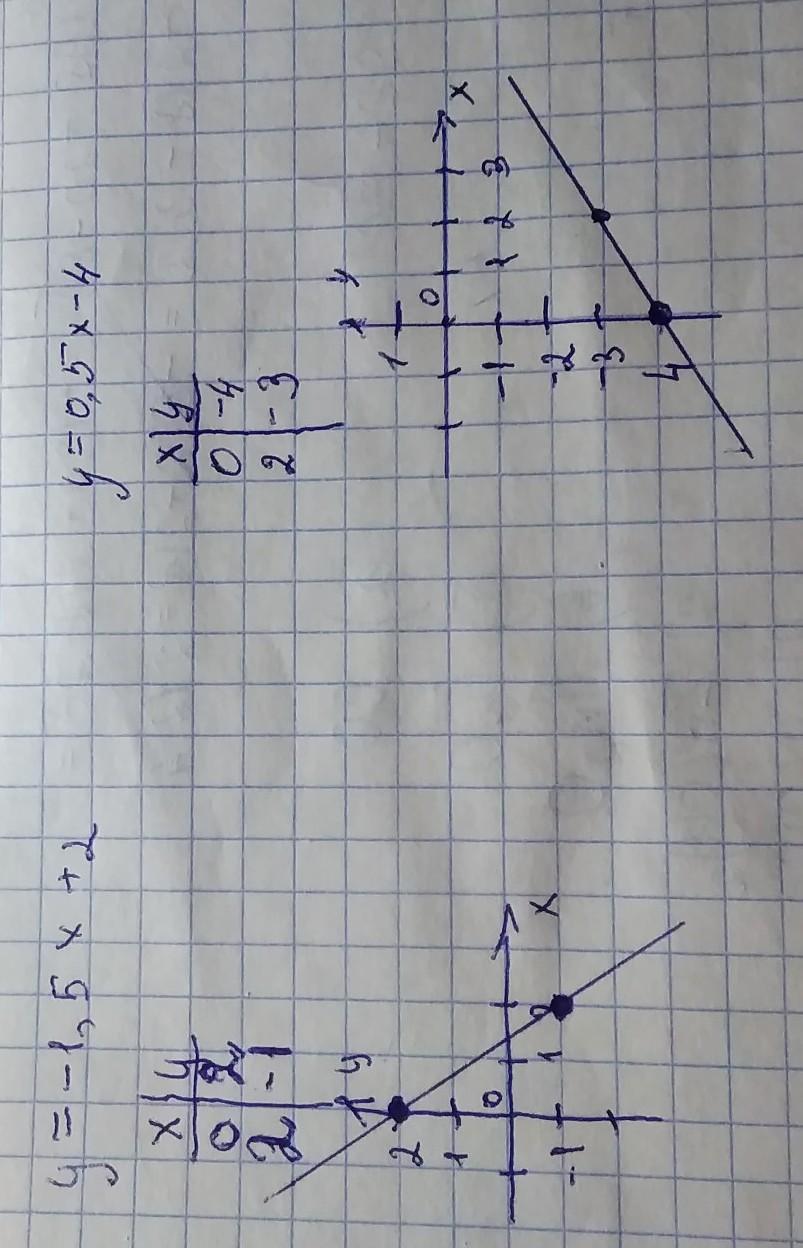 y = -1,5 x + 2
x y
0 2
2 -1
y
2
1
0
1
2
x
-1
y = 0,5 x - 4
x y
0 -4
2 -3
y
1
0
1
2
3
x
-1
-2
-3
4